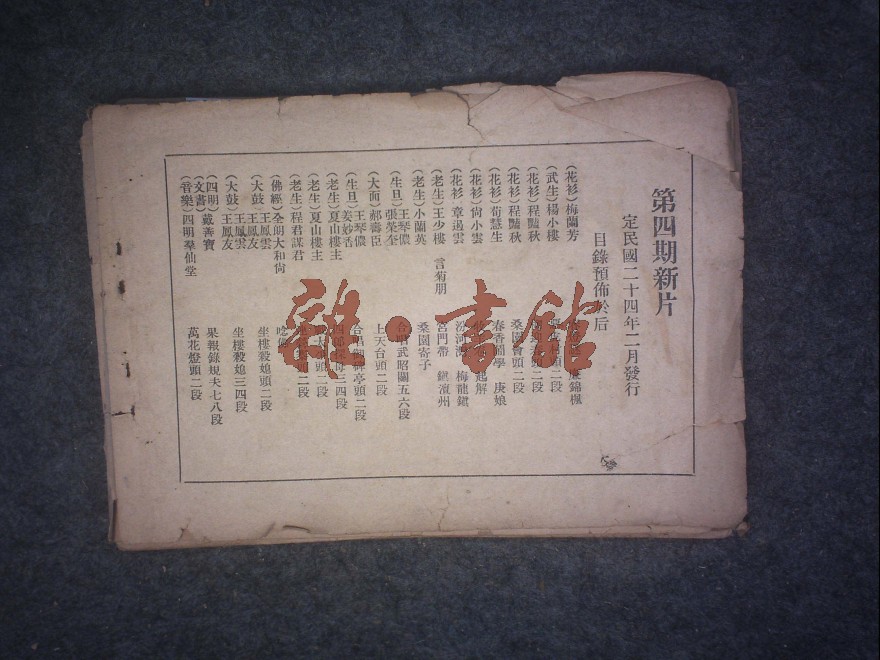 第四期新片
定民國二十四年二月發行
目錄預佈於后
（花衫）梅蘭芳
（武生）楊小樓 頭二段
（花衫）程豔秋 頭二段
（花衫）程豔秋 桑園會頭二段
（花衫）荀慧生 春香鬧學 庚娘
（花衫）尙小雲 起解
（花衫）章遏雲 汾河灣 梅龍鎭
（老生）王少樓 言菊朋 宮門帶 鎭澶州
（老生）小蘭英 桑園寄子
（生旦）王琴儂 張榮奎 合唱武昭關五六段
（大面）郝壽臣 上天台頭二段
（生旦）王琴儂 姜妙香 合唱 碑亭頭二段
（老生）夏山樓主 三四段
（老生）夏山樓主 頭二段
（老生）程君謀君 頭二段
（佛經）全朗大和尙 唸
（大鼓）王鳳雲 王鳳友 坐樓殺媳頭二段
（大鼓）王鳳雲 王鳳友 坐樓殺媳三四段
（四明文書）戴善寶 果報錄規夫七八段
（音樂）四明羣仙堂 萬花燈頭二段
雜·書館